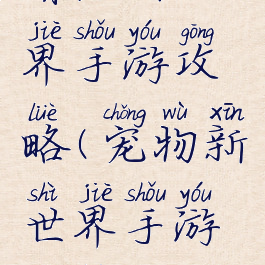 jiè shǒu yóu gōng
界手游攻
lüè chǒng wù xīn
略(宠物新
shì jiè shǒu yóu
世界手游